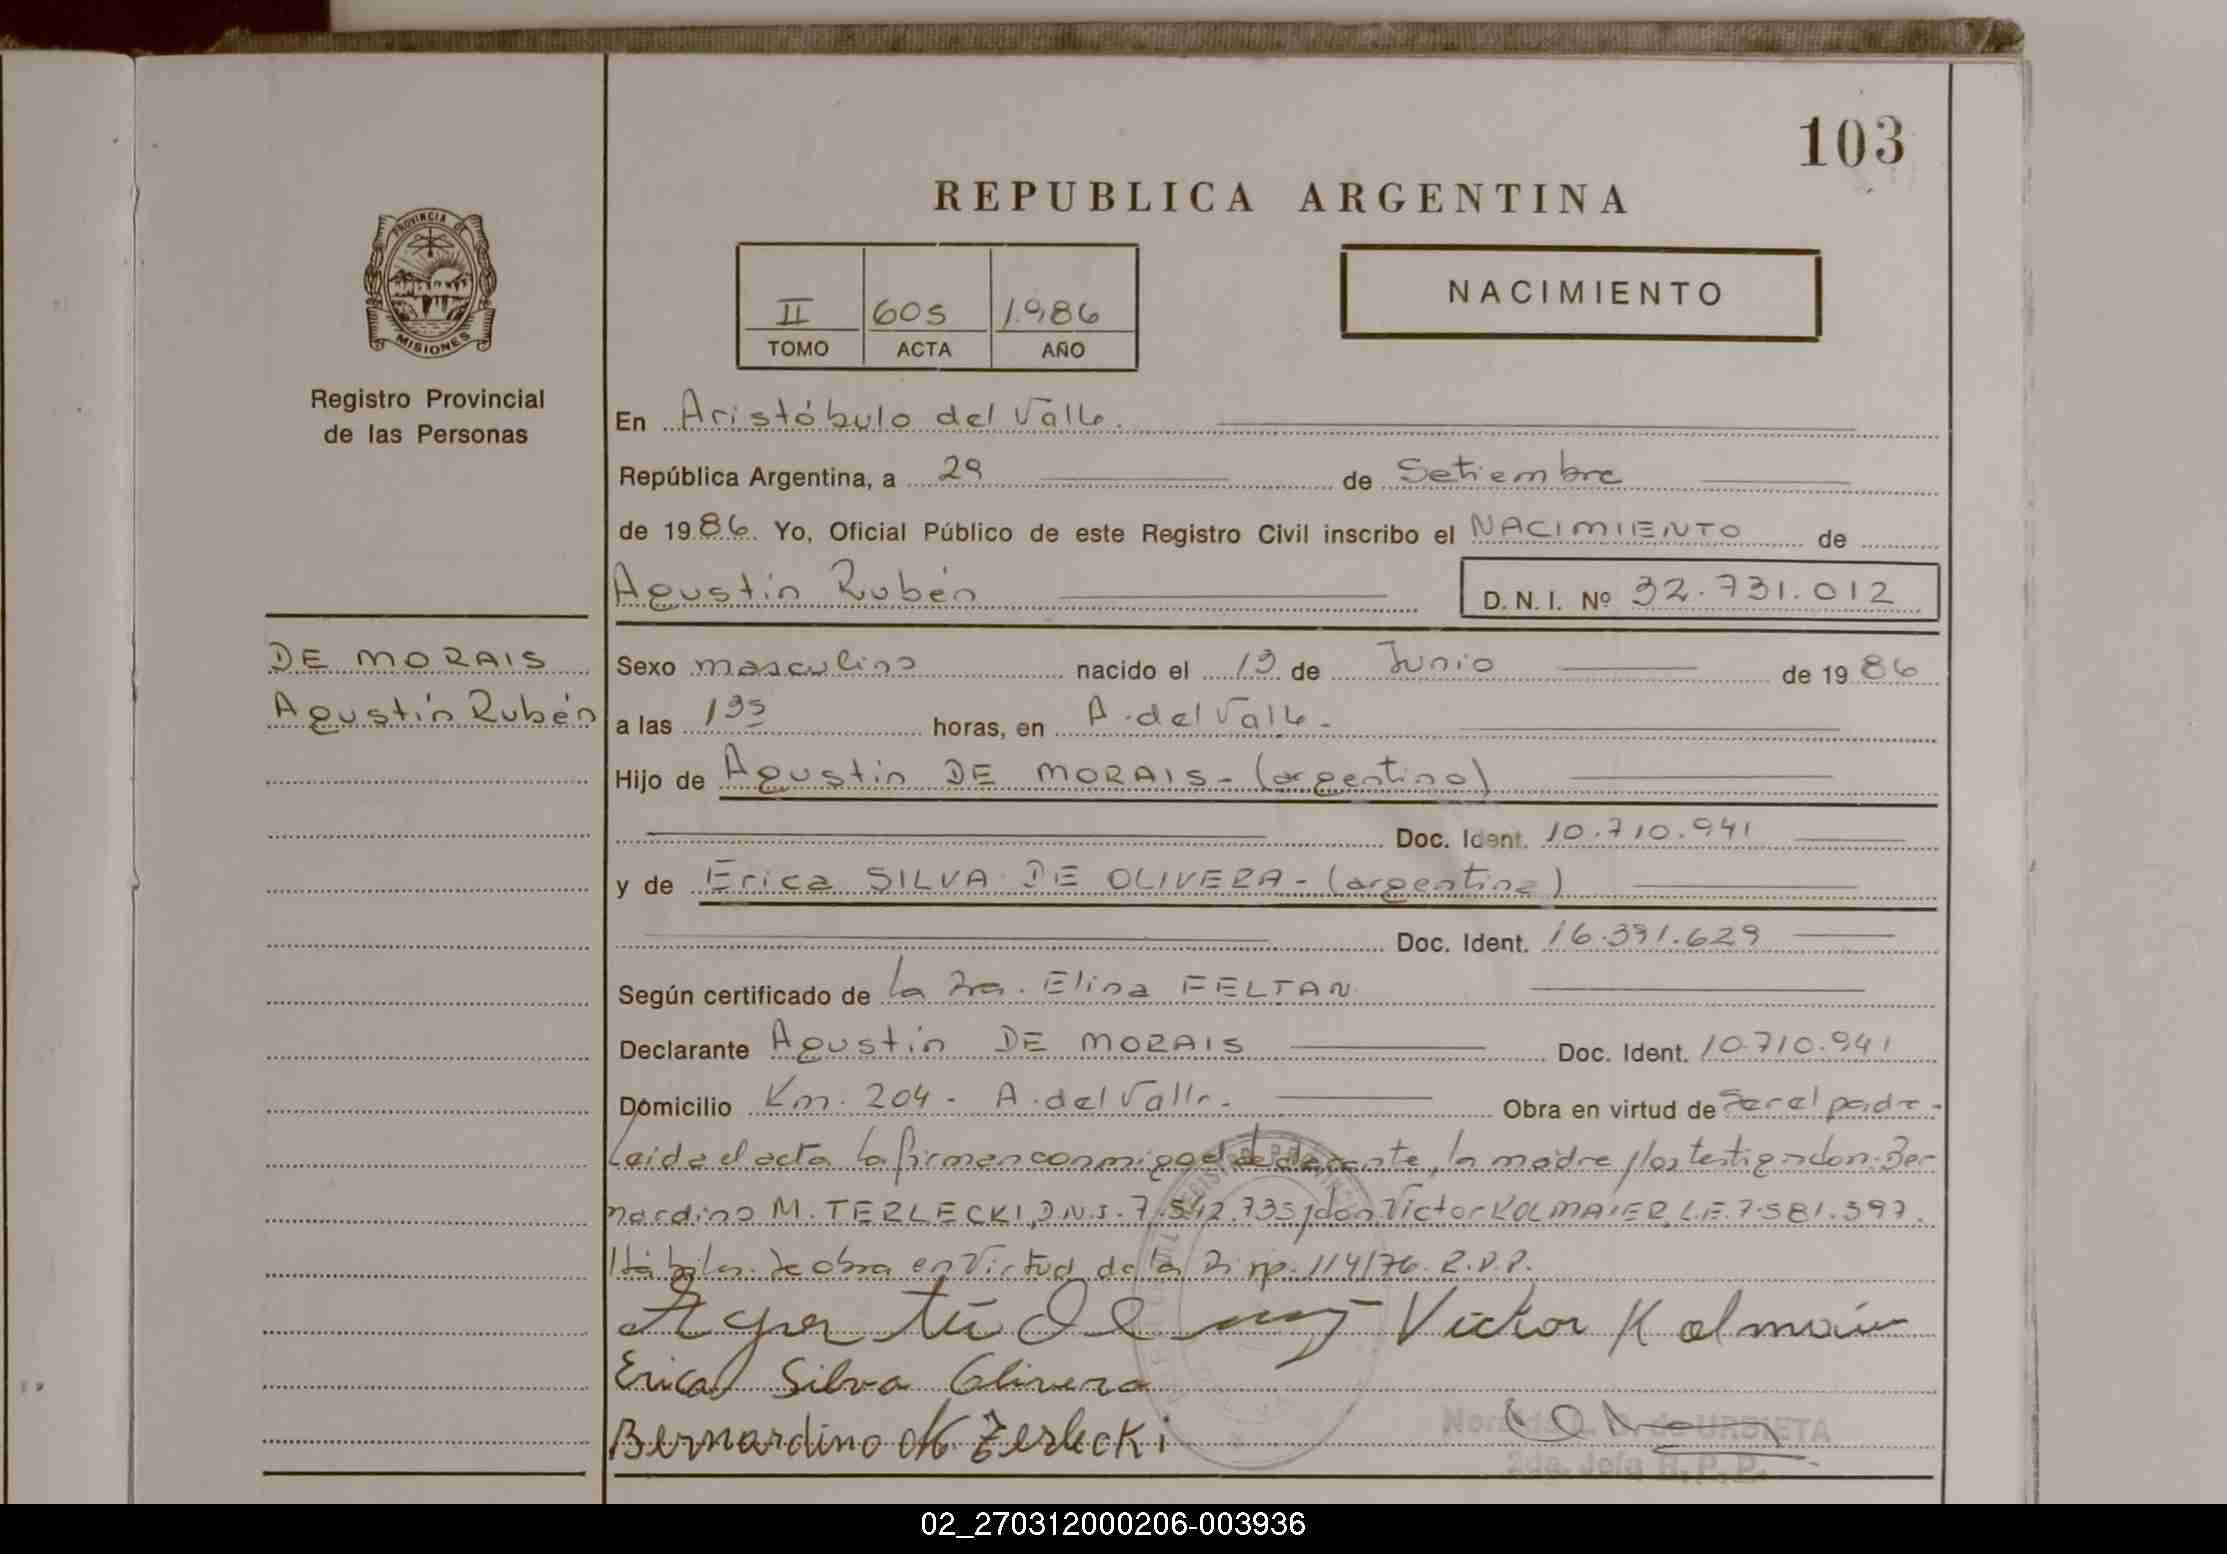 103
REPUBLICA ARGENTINA
PROVINCIA DE
MISIONES
Registro Provincial
de las Personas
II 605 1986
TOMO ACTA AÑO
NACIMIENTO
En Aristóbulo del Valle.
República Argentina, a 29 de Setiembre
de 1986. Yo, Oficial Público de este Registro Civil inscribo el NACIMIENTO de
Agustín Rubén
D. N. I. Nº 32.731.012
DE MORAIS
Agustín Rubén
Sexo masculino nacido el 13 de Junio de 1986
a las horas, en A. del Valle.
Hijo de Agustín DE MORAIS - (argentino)
Doc. Ident. 10.710.941
y de Erica SILVA DE OLIVERA - (argentina)
Doc. Ident. 16.391.629
Según certificado de la Elina FELTAN
Declarante Agustín DE MORAIS Doc. Ident. 10.710.941
Domicilio Km. 204 - A. del Valle. Obra en virtud de ser el padre -
Leida el acta la firman conmigo el la madre y los testigos don Ber
nardino M. TERLECKI, D.N.I. 7.542.735 y don Victor KOLMAIER, L.E. 7.581.397.
Hábiles. Se obra en Virtud de la Disp. 114/76. R.P.P.
Victor Kolmaier
Erica Silva Olivera
Bernardino M Terlecki
de URBIETA
2da. Jefa R.P.P.
02_270312000206-003936